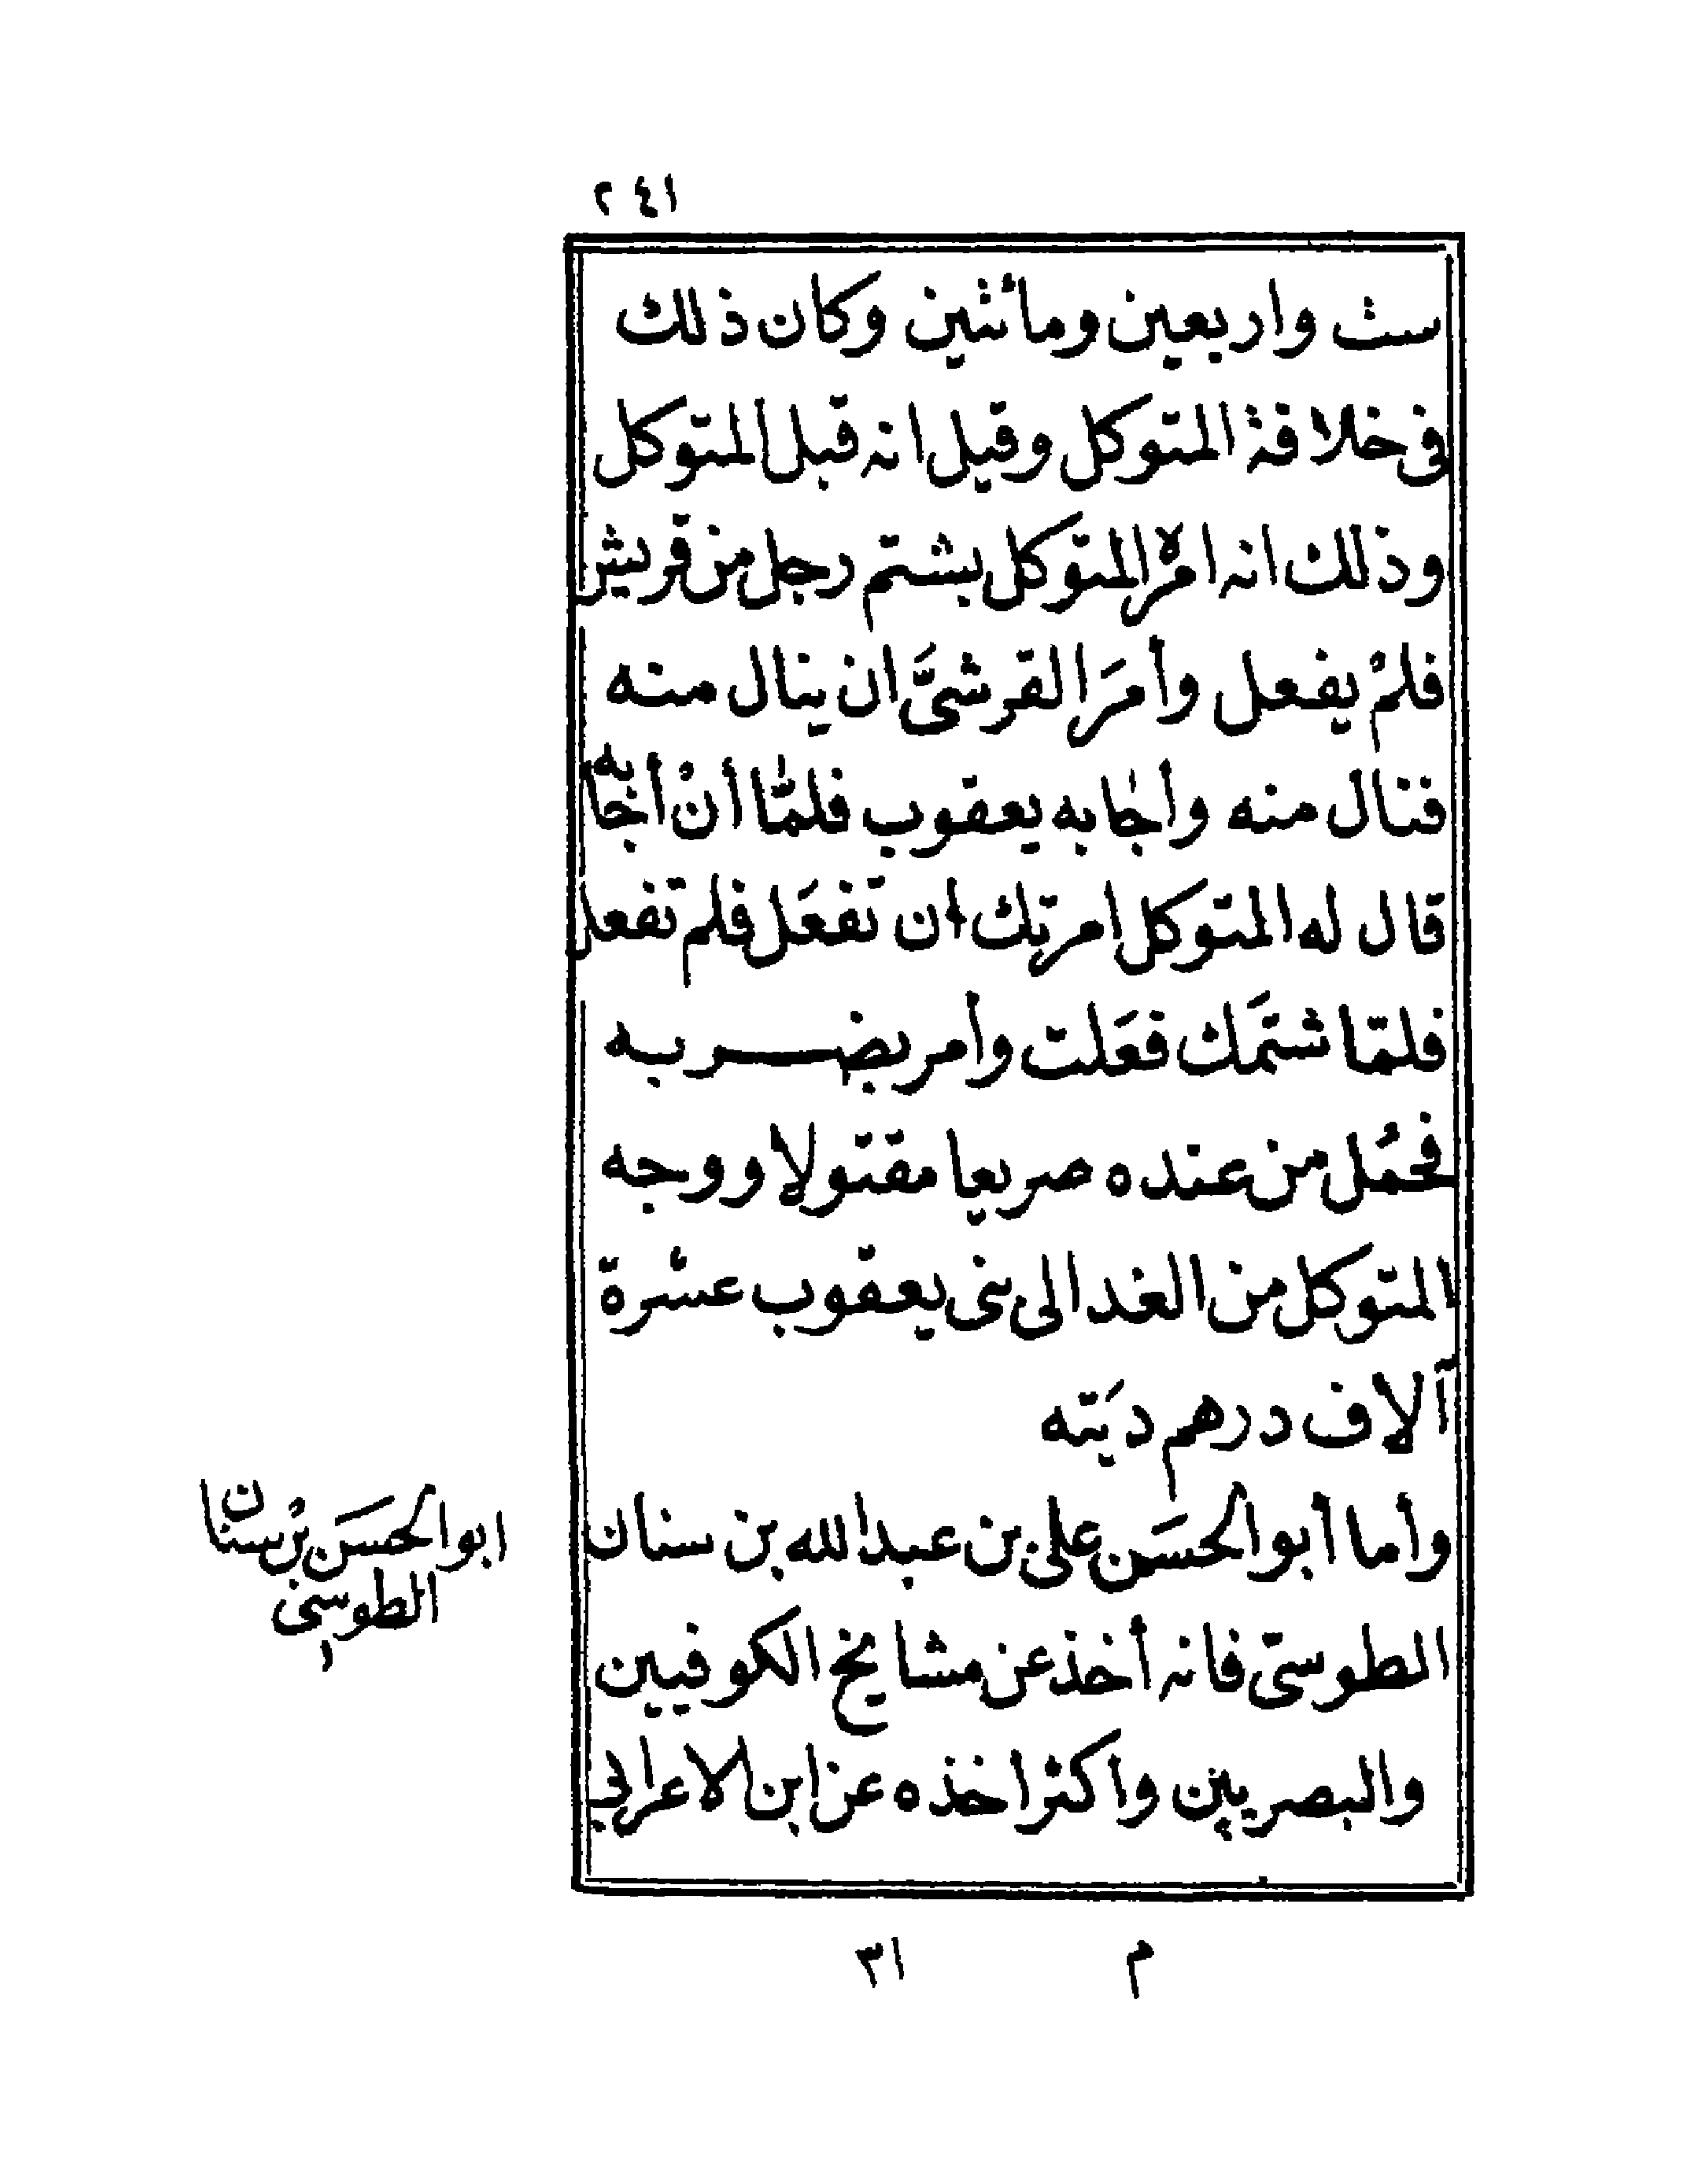 ٢٤١
ست واربعين ومائتين وكان ذلك
فى خلافة المتوكل وقيل انه قبل المتوكل
وذلك انه امره المتوكل بشتم رجل من قريش
فلمْ يفعل وأمرَ القرشىَّ ان ينال منه
فنال منه وأجابه يعقوب فلمّا أنْ أجابه
قال له المتوكل امرتك ان تفعَل فلم تفعل
فلمّا شتمَك فعَلت وأمر بضربه
فحُمل من عنده صريعا مقتولا ووجه
المتوكل من الغد الى بنى يعقوب عشرة
آلاف درهم ديَته
وأما أبو الحسَن على بن عبد الله بن سنان
الطوسىّ فانه أخذ عن مشايخ الكوفيين
والبصريين واكثر اخذه عن ابن الاعرابى
ابو الحسَن بْن سنان
الطوسى
م ٣١